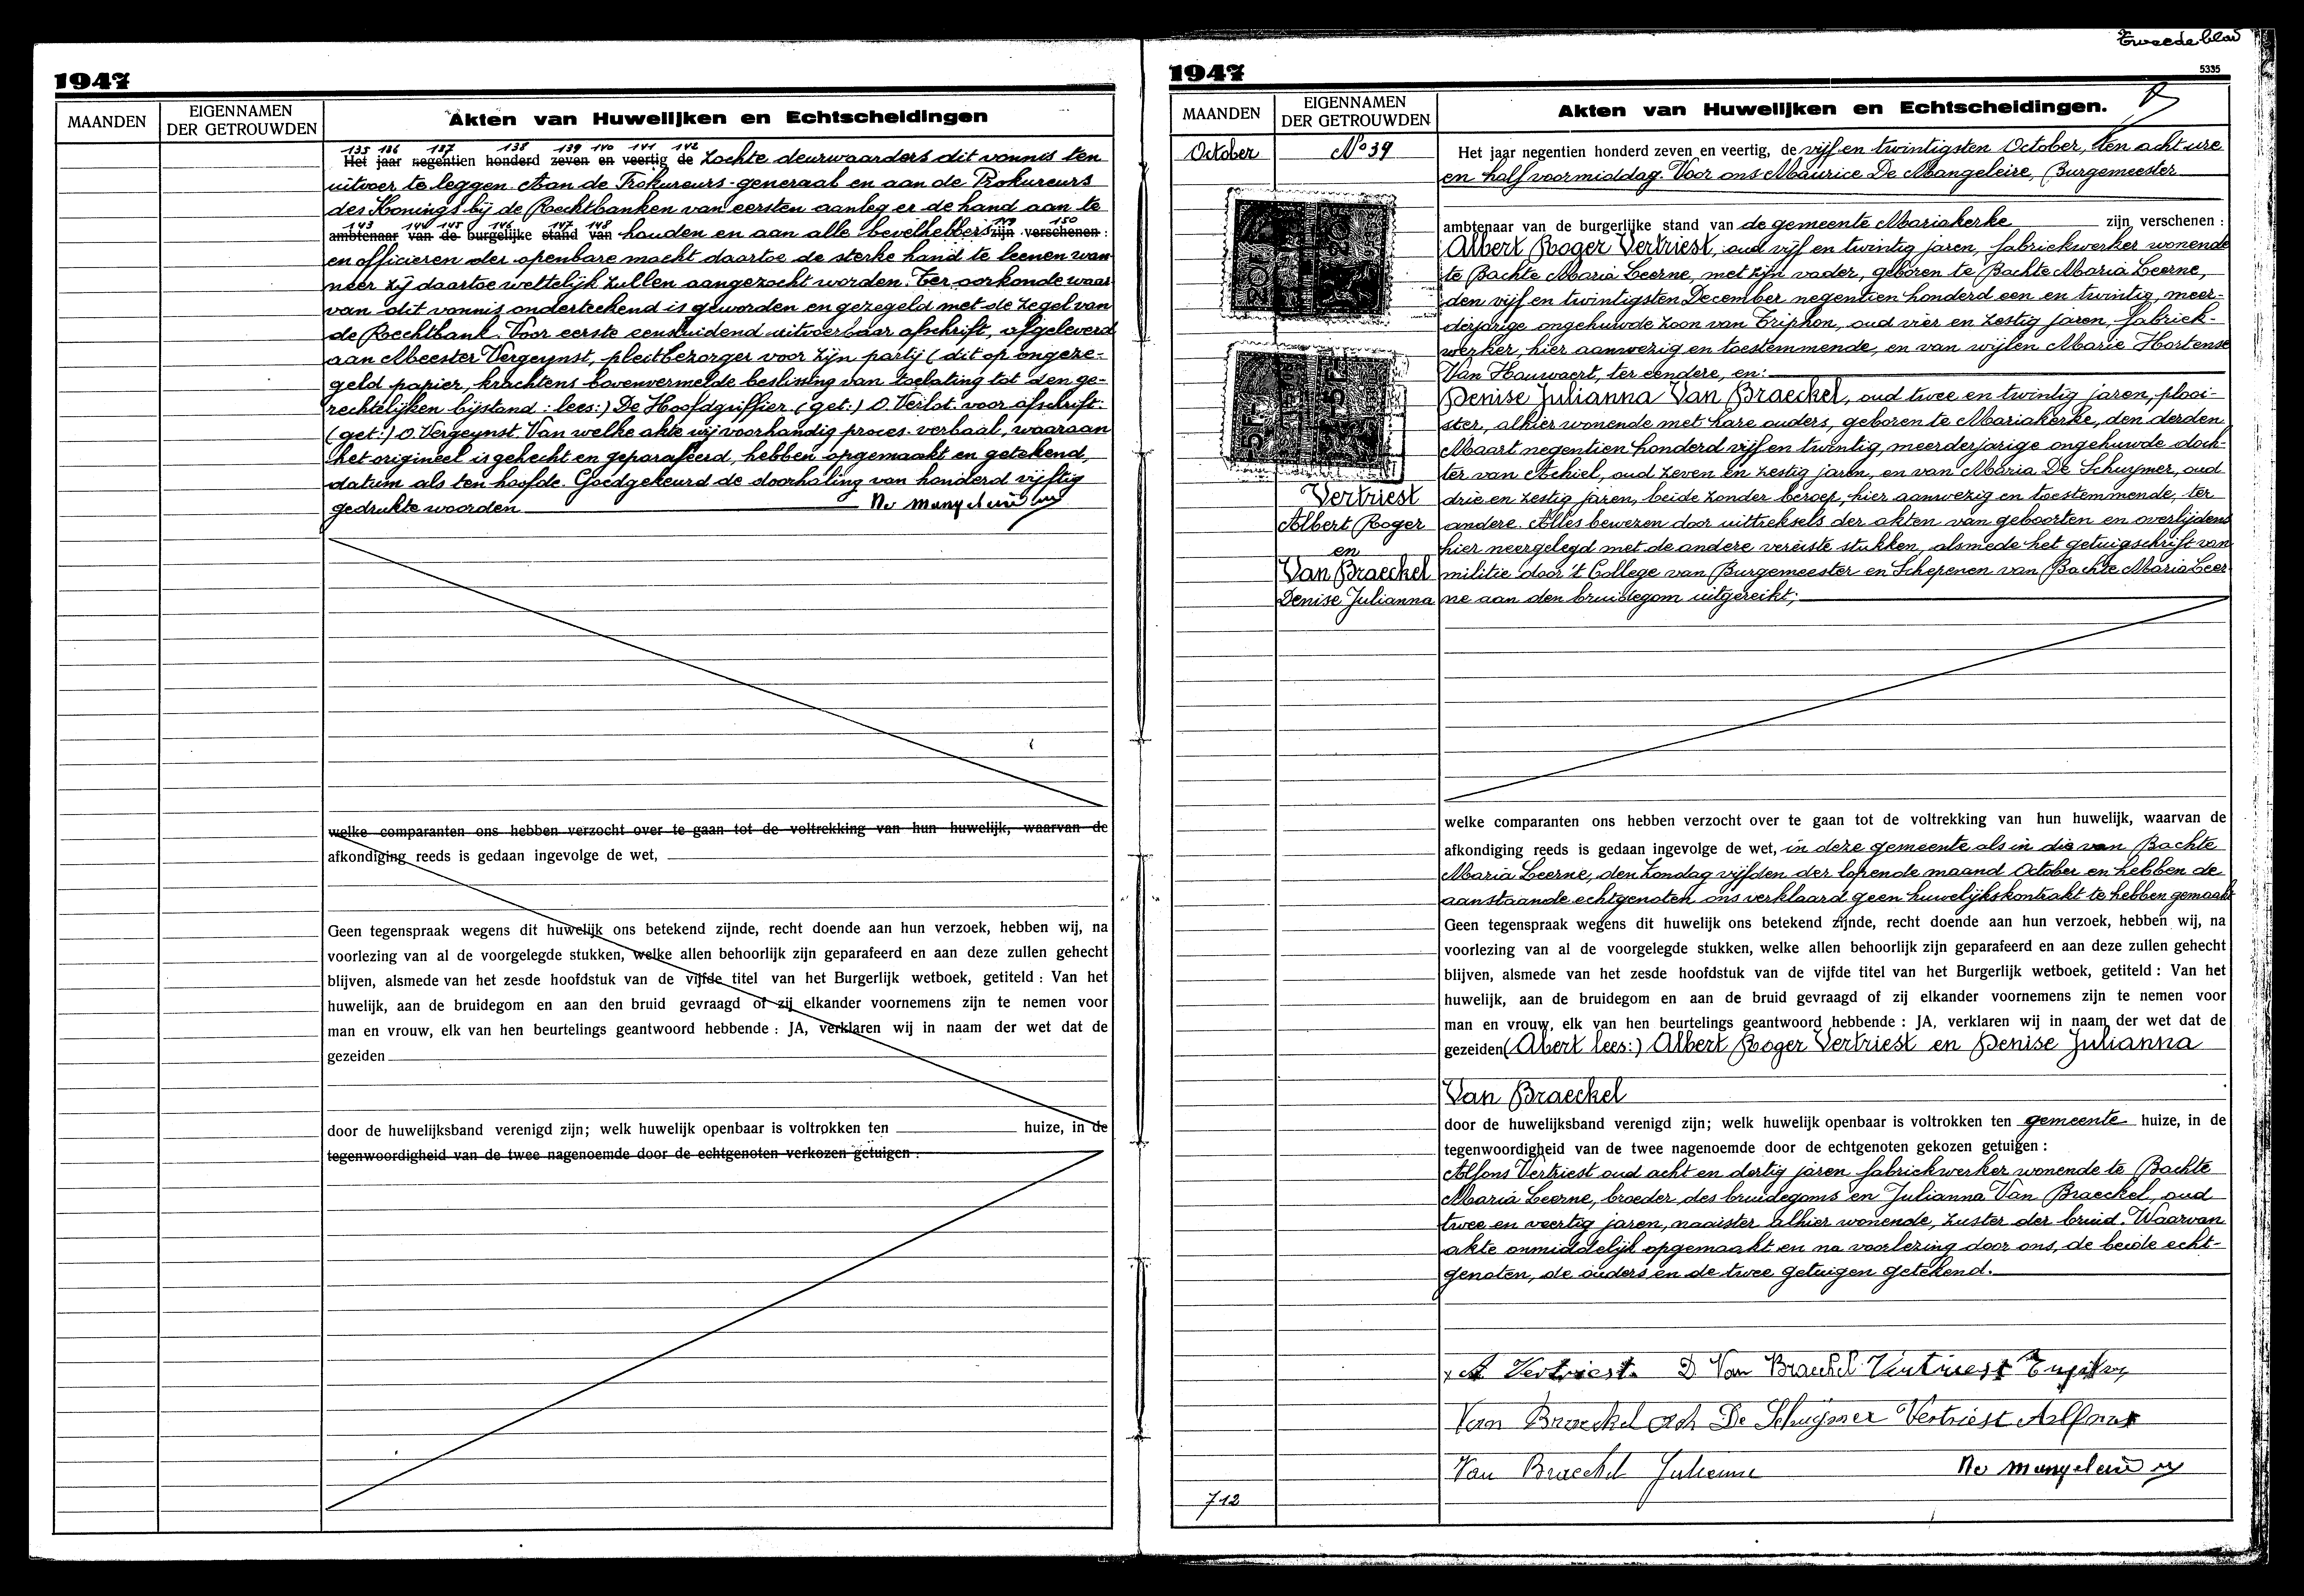 1947
MAANDEN
EIGENNAMEN
DER GETROUWDEN
Akten van Huwelijken en Echtscheidingen
135 136 137 138 139 140 141 142
Het jaar negentien honderd zeven en veertig de zochte deurwaarders dit vonnis ten
uitvoer te leggen. Aan de Prokureurs-generaal en aan de Prokureurs
des Konings bij de Rechtbanken van eersten aanleg er de hand aan te
143 144 145 146 147 148 149 150
ambtenaar van de burgelijke stand van houden en aan alle bevelhebbers zijn verschenen :
en officieren der openbare macht daartoe de sterke hand te leenen wan-
neer zij daartoe wettelijk zullen aangezocht worden. Ter oorkonde waar
van dit vonnis onderteekend is geworden en gezegeld met de zegel van
de Rechtbank. Voor eerste eensluidend uitvoerbaar afschrift, afgeleverd
aan Meester Vergeynst, pleitbezorger voor zijn partij (dit op ongeze-
geld papier, krachtens bovenvermelde beslissing van toelating tot den ge-
rechtelijken bijstand : lees:) De Hoofdgriffier (get:) O. Verlot. voor afschrift:
(get:) O. Vergeynst. Van welke akte wij voorhandig proces-verbaal, waaraan
het origineel is gehecht en geparafeerd, hebben opgemaakt en getekend,
datum als ten hoofde. Goedgekeurd de doorhaling van honderd vijftig
gedrukte woorden.
welke comparanten ons hebben verzocht over te gaan tot de voltrekking van hun huwelijk, waarvan de
afkondiging reeds is gedaan ingevolge de wet,
Geen tegenspraak wegens dit huwelijk ons betekend zijnde, recht doende aan hun verzoek, hebben wij, na
voorlezing van al de voorgelegde stukken, welke allen behoorlijk zijn geparafeerd en aan deze zullen gehecht
blijven, alsmede van het zesde hoofdstuk van de vijfde titel van het Burgerlijk wetboek, getiteld : Van het
huwelijk, aan de bruidegom en aan den bruid gevraagd of zij elkander voornemens zijn te nemen voor
man en vrouw, elk van hen beurtelings geantwoord hebbende : JA, verklaren wij in naam der wet dat de
gezeiden
door de huwelijksband verenigd zijn; welk huwelijk openbaar is voltrokken ten huize, in de
tegenwoordigheid van de twee nagenoemde door de echtgenoten verkozen getuigen :
Tweede blad
1947
5335
MAANDEN
EIGENNAMEN
DER GETROUWDEN
Akten van Huwelijken en Echtscheidingen.
October
No 39
Het jaar negentien honderd zeven en veertig, de vijf en twintigsten October, ten acht ure
en half voormiddag. Voor ons Maurice De Mangeleire, Burgemeester
ambtenaar van de burgerlijke stand van de gemeente Mariakerke zijn verschenen :
Albert Roger Vertriest, oud vijf en twintig jaren, fabriekwerker wonende
te Bachte Maria Leerne, met zijn vader, geboren te Bachte Maria Leerne,
den vijf en twintigsten December negentien honderd een en twintig, meer-
derjarige ongehuwde zoon van Triphon, oud vier en zestig jaren, fabriek-
werker, hier aanwezig en toestemmende, en van wijlen Marie Hortense
Van Hauwaert, ter eendere, en:
Denise Julianna Van Braeckel, oud twee en twintig jaren, plooi-
ster, alhier wonende met hare ouders, geboren te Mariakerke, den derden
Maart negentien honderd vijf en twintig, meerderjarige ongehuwde doch-
ter van Achiel, oud zeven en zestig jaren, en van Maria De Schuymer, oud
drie en zestig jaren, beide zonder beroep, hier aanwezig en toestemmende, ter
andere. Alles bewezen door uittreksels der akten van geboorten en overlijdens
hier neergelegd met de andere vereiste stukken, alsmede het getuigschrift van
militie door 't College van Burgemeester en Schepenen van Bachte Maria Leer-
ne aan den bruidegom uitgereikt;
Vertriest
Albert Roger
en
Van Braeckel
Denise Julianna
welke comparanten ons hebben verzocht over te gaan tot de voltrekking van hun huwelijk, waarvan de
afkondiging reeds is gedaan ingevolge de wet, in deze gemeente als in die van Bachte
Maria Leerne, den Zondag vijfden der lopende maand October en hebben de
aanstaande echtgenoten ons verklaard geen huwelijkskontrakt te hebben gemaakt
Geen tegenspraak wegens dit huwelijk ons betekend zijnde, recht doende aan hun verzoek, hebben wij, na
voorlezing van al de voorgelegde stukken, welke allen behoorlijk zijn geparafeerd en aan deze zullen gehecht
blijven, alsmede van het zesde hoofdstuk van de vijfde titel van het Burgerlijk wetboek, getiteld : Van het
huwelijk, aan de bruidegom en aan de bruid gevraagd of zij elkander voornemens zijn te nemen voor
man en vrouw, elk van hen beurtelings geantwoord hebbende : JA, verklaren wij in naam der wet dat de
gezeiden (Abert lees:) Albert Roger Vertriest en Denise Julianna
Van Braeckel
door de huwelijksband verenigd zijn; welk huwelijk openbaar is voltrokken ten gemeente huize, in de
tegenwoordigheid van de twee nagenoemde door de echtgenoten gekozen getuigen :
Alfons Vertriest oud acht en dertig jaren fabriekwerker wonende te Bachte
Maria Leerne, broeder des bruidegoms en Julianna Van Braeckel, oud
twee en veertig jaren, naaister alhier wonende, zuster der bruid. Waarvan
akte onmiddelijk opgemaakt en na voorlezing door ons, de beide echt-
genoten, de ouders en de twee getuigen getekend.
A Vertriest. D Van Braeckel Vertriest
Van Braeckel Ach De Schuymer Vertriest Alfons
Van Braeckel Julienne
712